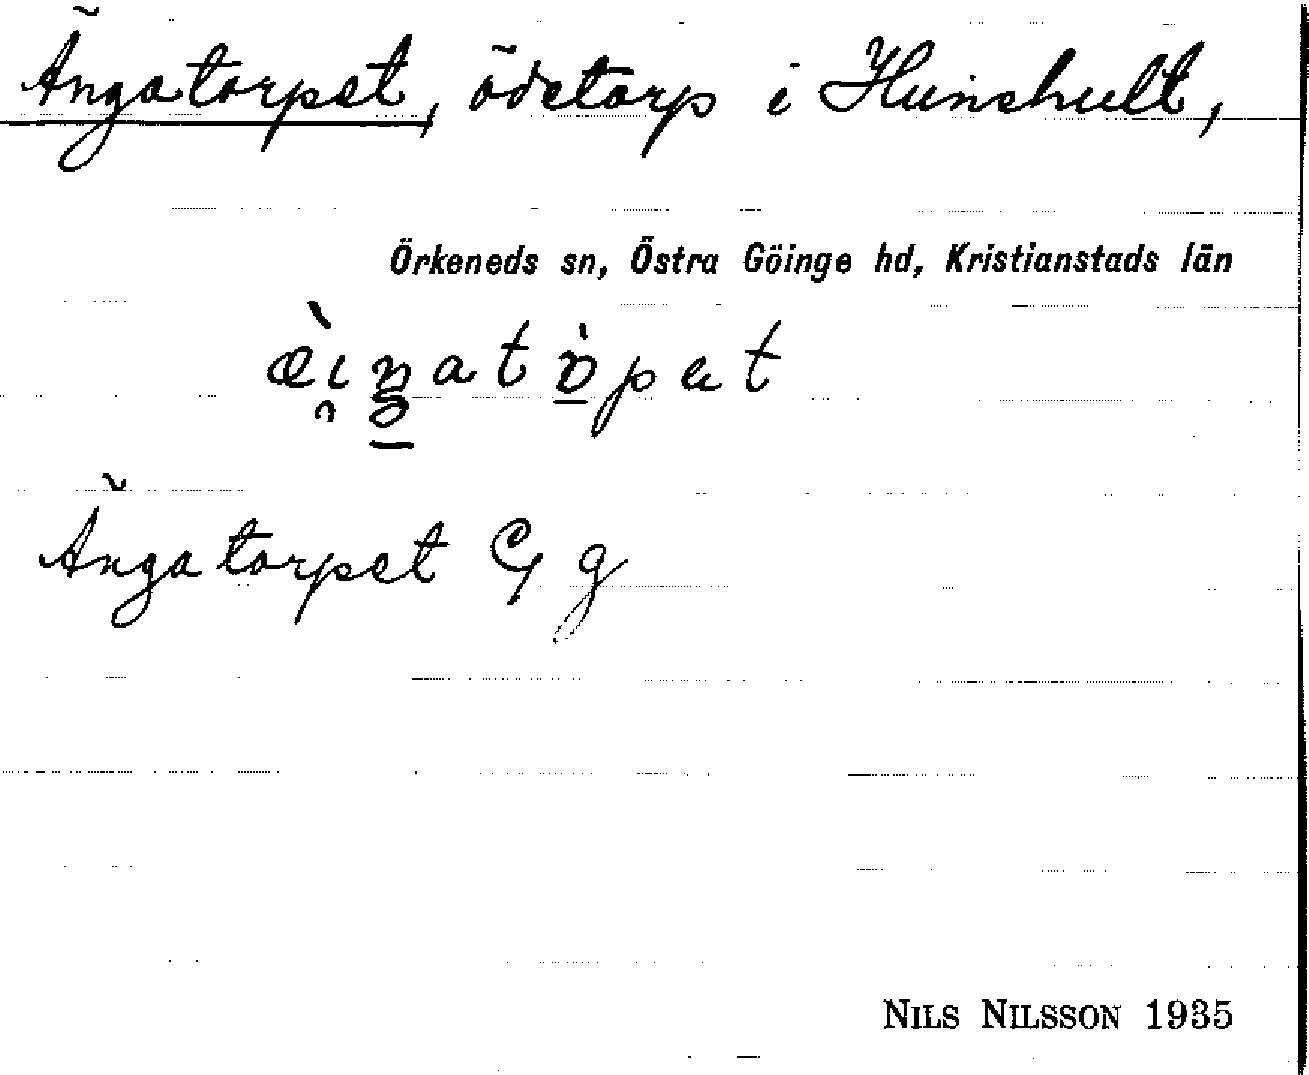 Ängatorpet, ödetorp i Hunshult,
Örkeneds sn, Östra Göinge hd, Kristianstads län
Ängatorpet Gg
NILS NILSSON 1935